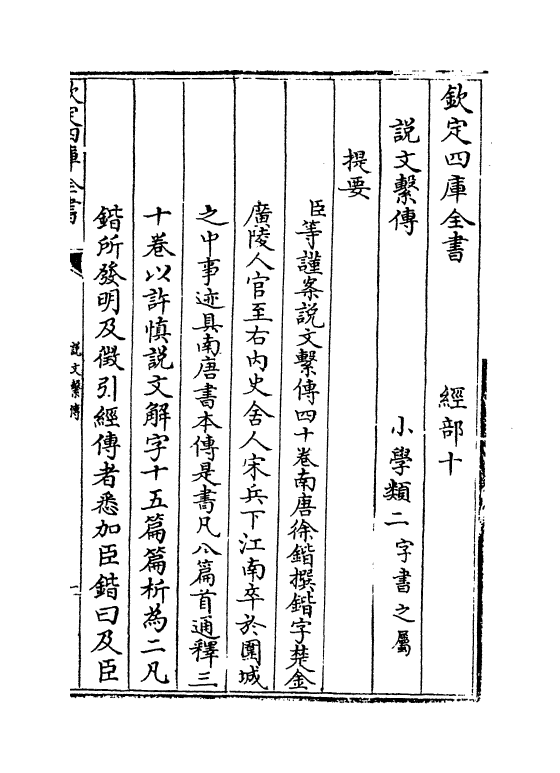 欽定四庫全書　經部十
說文繫傳　小學類二字書之屬
提要
臣等謹案說文繫傳四十卷南唐徐鍇撰鍇字楚金
廣陵人官至右內史舍人宋兵下江南卒於圍城
之中事迹具南唐書本傳是書凡八篇首通釋三
十卷以許慎說文解字十五篇篇析為二凡
鍇所發明及徵引經傳者悉加臣鍇曰及臣
欽定四庫全書
說文繫傳
一